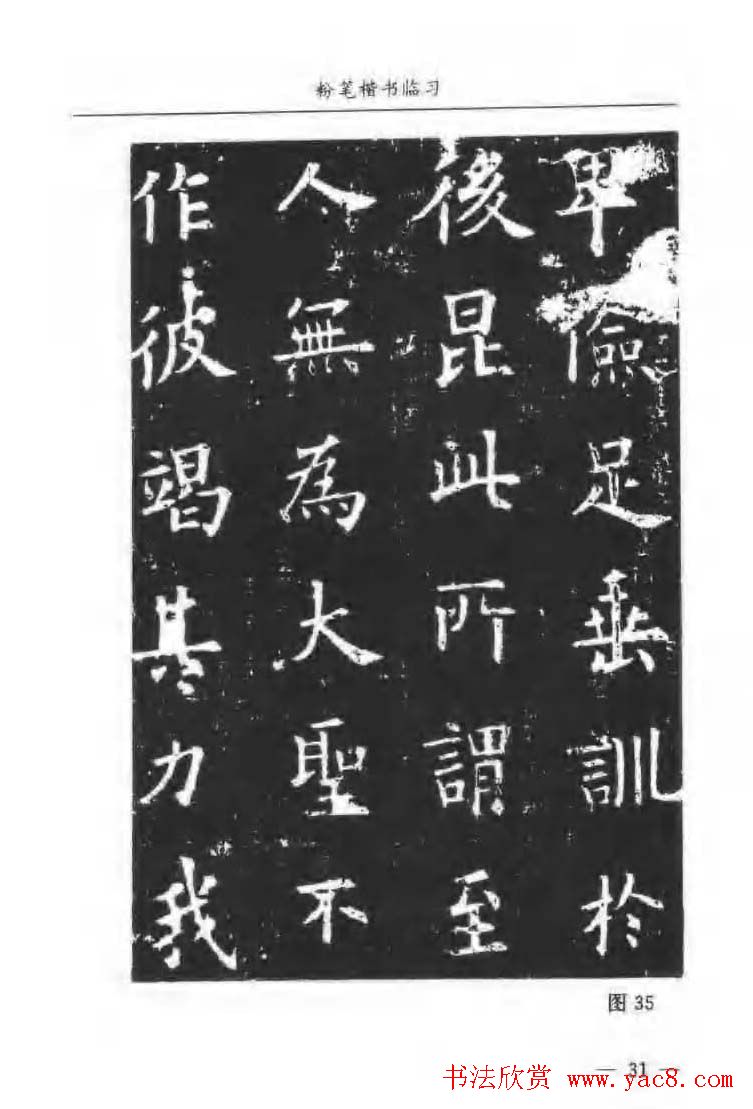 粉笔楷书临习
卑儉足垂訓於
後昆此所謂至
人無為大聖不
作彼竭其力我
图 35
— 31 —
书法欣赏 www.yac8.com